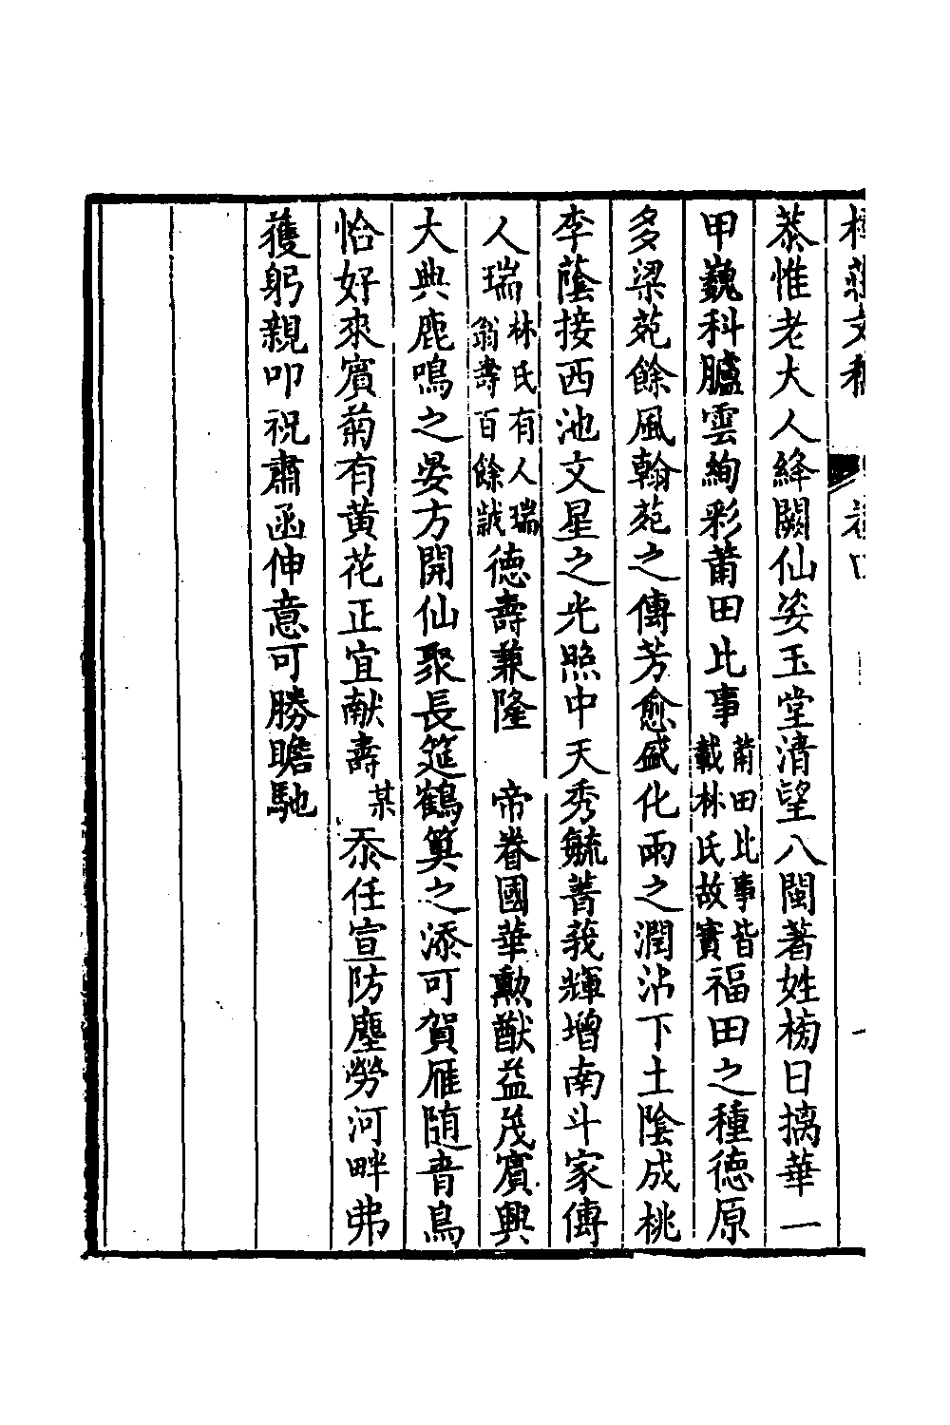 恭惟老大人絳闕仙姿玉堂清望八閩著姓榜日摛華一
甲巍科臚雲絢彩莆田比事莆田比事皆載林氏故實福田之種德原
多梁苑餘風翰苑之傳芳愈盛化雨之潤沾下土陰成桃
李蔭接西池文星之光照中天秀毓菁莪輝增南斗家傳
人瑞林氏有人瑞翁壽百餘歲德壽兼隆　帝眷國華勲猷益茂賓興
大典鹿鳴之晏方開仙聚長筵鶴算之添可賀雁随青鳥
恰好來賓菊有黄花正宜献壽某忝任宣防塵勞河畔弗
獲躬親叩祝肅函伸意可勝瞻馳